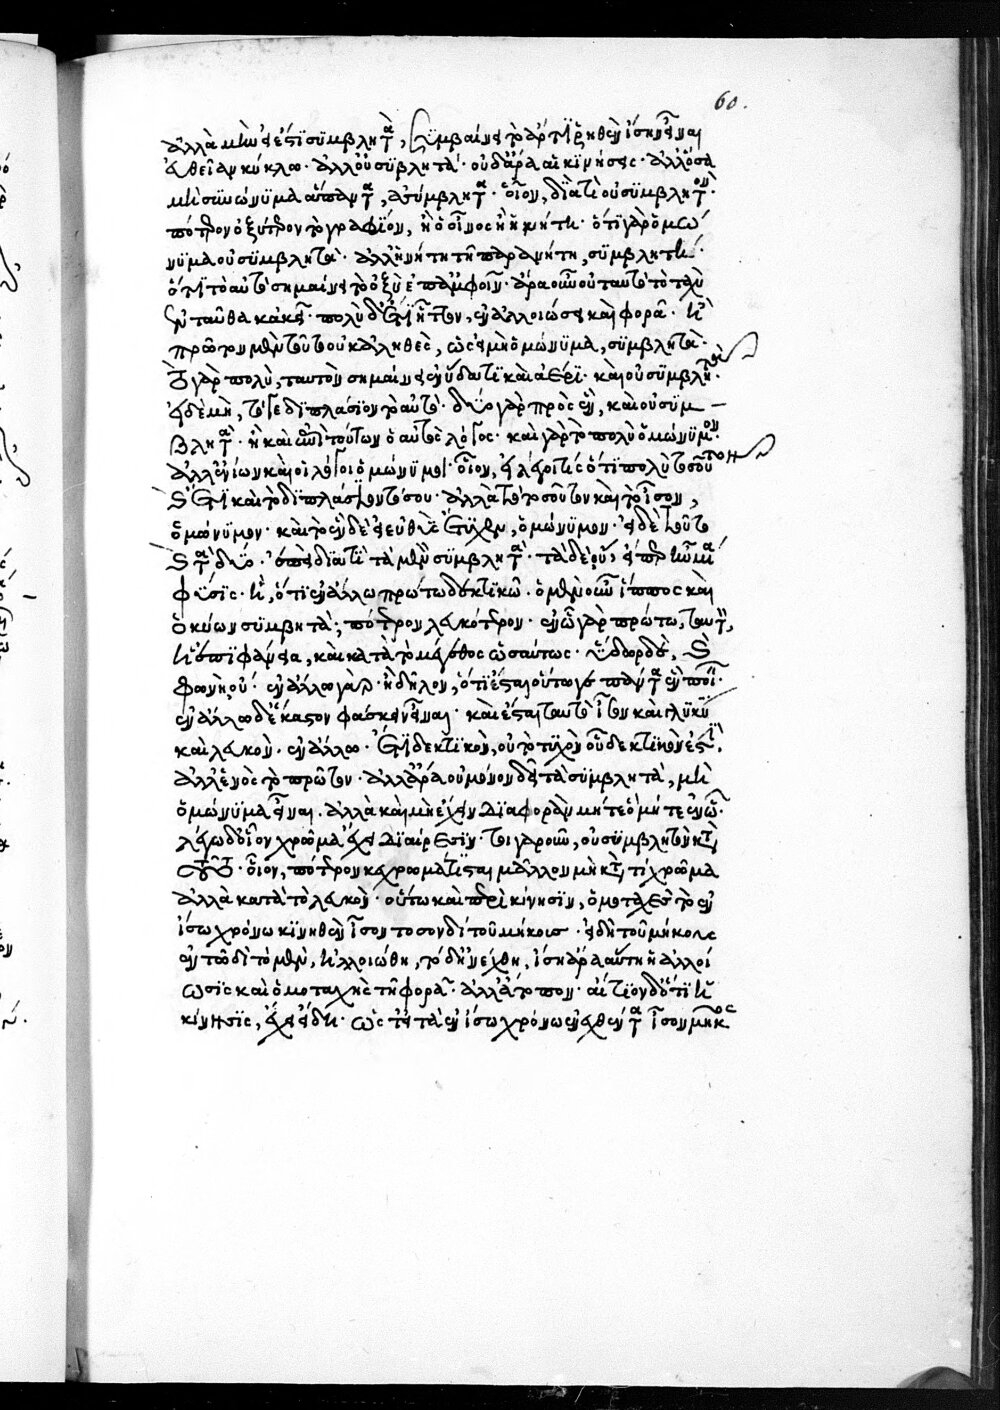 ἀλλὰ μὴν εἰ ἔστι συμβλητὰ, συμβαίνει τὸ ἄρτι ῥηθὲν ἴσην εἶναι
εὐθεῖαν κύκλω· ἀλλ' οὐ συμβλητά· οὐδ' ἄρα αἱ κινήσεις· ἀλλ' ὅσα
μὴ συνώνυμα ἅπαντα, ἀσύμβλητα· οἷον, διὰ τί οὐ συμβλητὸν·
πότερον ὀξύτερον τὸ γραφίον, ἢ ὁ οἶνος ἢ ἡ νήτη· ὅτι γὰρ ὁμώ
νυμα οὐ συμβλητὰ· ἀλλ' ἡ νήτη τῆ παρανήτη, συμβλητή·
ὅτι τὸ αὐτὸ σημαίνει τὸ ὀξὺ ἐπ' ἀμφοῖν· ἆρα οὖν οὐ ταυτὸ τὸ ταχὺ
ἐνταῦθα κἀκεῖ· πολὺ δ' ἔτι ἧττον, ἐν ἀλλοιώσει καὶ φορᾶ· ἢ
πρῶτον μὲν τοῦτο οὐκ ἀληθὲς, ὡς εἰ μὴ ὁμώνυμα, συμβλητὰ·
τὸ γὰρ πολὺ, ταυτὸν σημαίνει ἐν ὕδατι καὶ ἀέρι· καὶ οὐ συμβλητὰ·
εἰ δὲ μὴ, τό γε διπλάσιον τὸ αὐτό· δύο γὰρ πρὸς ἓν, καὶ οὐ συμ
βλητὰ· ἢ καὶ ἐπὶ τούτων ὁ αὐτὸς λόγος· καὶ γὰρ τὸ πολὺ ὁμώνυμον·
ἀλλ' ἐνίων καὶ οἱ λόγοι ὁμώνυμοι· οἷον, εἰ λέγοι τις ὅτι πολὺ τοσοῦτον
καὶ ἔτι καὶ τὸ διπλάσιον τόσου· ἀλλὰ τὸ τοσοῦτον καὶ τὸ ἴσον,
ὁμώνυμον· καὶ τὸ ἓν δὲ εὐθὺς ἔτυχεν, ὁμώνυμον· εἰ δὲ τοῦτο
καὶ τὰ δύο· ἐπεὶ διατί τὰ μὲν συμβλητὰ· τὰ δὲ οὔ, εἴπερ ἦν μία
φύσις· ἢ, ὅτι ἐν ἄλλω πρώτω δεκτικῶ· ὁ μὲν οὖν ἵππος καὶ
ὁ κύων συμβητὰ, πότερον λευκότερον· ἐν ὧ γὰρ πρώτω, ταυτὸ,
ἡ ἐπιφάνεια, καὶ κατὰ τὸ μέγεθος ὡσαύτως· ὕδωρ δὲ, καὶ
φωνὴ, οὔ· ἐν ἄλλω γὰρ· ἢ δῆλον, ὅτι ἔσται οὕτω γε πάντα ἓν ποιεῖν·
ἐν ἄλλω δὲ ἕκαστον φάσκειν εἶναι· καὶ ἔσται ταυτὸ ἴσον καὶ γλυκὺ
καὶ λευκὸν· ἐν ἄλλω· ἔτι δεκτικὸν, οὐ τὸ τυχὸν οὗ δεκτικὸν ἐστὶ·
ἀλλ' ἑνὸς τὸ πρῶτον· ἀλλ' ἄρα οὐ μόνον δεῖ τὰ συμβλητὰ, μὴ
ὁμώνυμα εἶναι, ἀλλὰ καὶ μὴ ἔχειν διαφορὰν μήτε ὃ μήτε ἐν ὧ·
λέγω δὲ οἷον χρῶμα ἔχει διαίρεσιν· τοιγαροῦν, οὐ συμβλητὸν κατὰ
τοῦτο· οἷον, πότερον κεχρωμάτισται μᾶλλον μὴ κατὰ τὶ χρῶμα
ἀλλὰ κατὰ τὸ λευκὸν· οὕτω καὶ περὶ κίνησιν, ὁμοταχὲς τὸ ἐν
ἴσω χρόνω κινηθὲν ἴσον τοσονδὶ τοῦ μήκους· εἰ δὴ τοῦ μήκους
ἐν τωδὶ τὸ μὲν, ἠλλοιώθη, τὸ δ' ἠνέχθη, ἴση ἄρα αὕτη ἡ ἀλλοί
ωσις καὶ ὁμοταχὴς τῆ φορᾶ· ἀλλ' ἄτοπον· αἴτιον δ' ὅτι ἡ
κίνησις, ἔχει εἴδη· ὡς εἰ τὰ ἐν ἴσω χρόνω ἐνεχθέντα ἴσον μῆκος